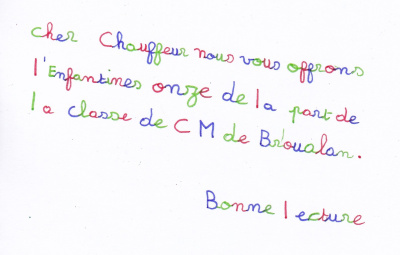 cher Chauffeur nous vous offrons
l'Enfantines onze de la part de
la classe de CM de Br'oualan.
Bonne lecture